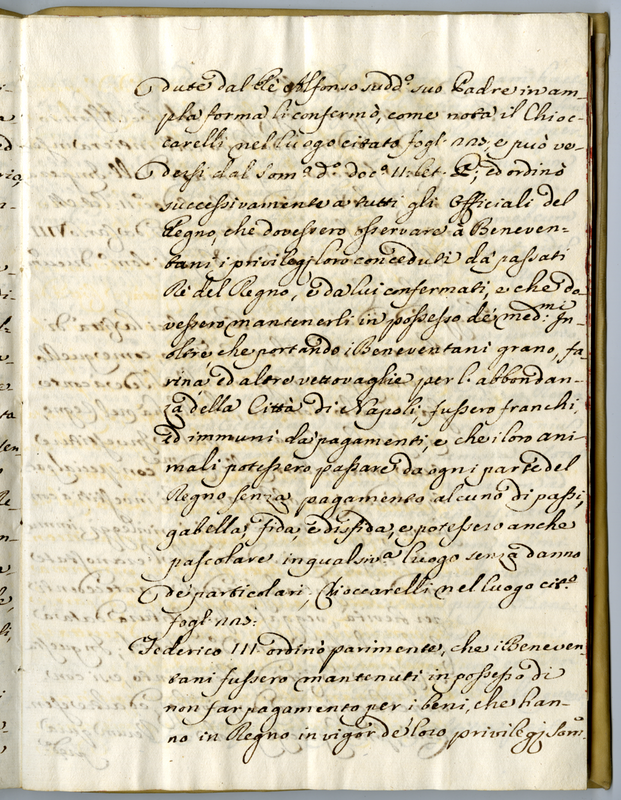 dute dal Rè Alfonso sudd.º suo Padre in am-
pla forma li confermò, come nota il Chioc-
carelli nel luogo citato fogl: e può ve-
dersi dal Som.º d.º doc.º 11. let. ed ordinò
successivamente a tutti gli Officiali del
Regno, che dovessero osservare a' Beneven-
tani i privilegj loro conceduti da' passati
Rè del Regno, e da lui confermati, e che do-
vessero mantenerli in possesso de' med:mi In-
oltre, che portando i Beneventani grano, fa-
rina, ed altre vettovaglie per l'abbondan-
za della Città di Napoli, fussero franchi,
ed immuni da' pagamenti, e che i loro ani-
mali potessero passare da ogni parte del
Regno senza pagamento alcuno di passi,
gabella, fida, e disfida, e potessero anche
pascolare in qualsiv.ª luogo senza danno
de' particolari, Chioccarelli nel luogo cit.º
fogl:
Federico III. ordinò parimente, che i Beneven-
tani fussero mantenuti in possesso di
non far pagamento per i beni, che han-
no in Regno in vigor de' loro privilegj Som.